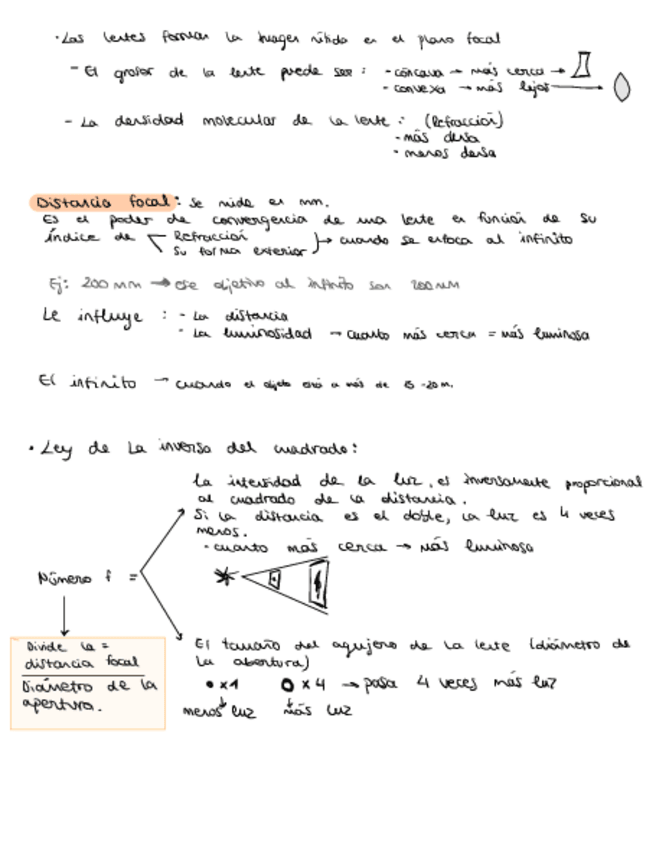 · Las lentes forman la imagen nítida en el plano focal
- El grosor de la lente puede ser : - cóncava → más cerca →
- convexa → más lejos →
- La densidad molecular de la lente : (Refracción)
- más densa
- menos densa
Distancia focal : Se mide en mm.
Es el poder de convergencia de una lente en función de su
índice de Refracción
Su forma exterior → cuando se enfoca al infinito
Ej: 200 mm → ese objetivo al infinito son 200 mm
Le influye : - La distancia
- La luminosidad → cuanto más cerca = más luminosa
El infinito → cuando el objeto está a más de 15-20 m.
· Ley de la inversa del cuadrado :
La intensidad de la luz, es inversamente proporcional
al cuadrado de la distancia.
Si la distancia es el doble, la luz es 4 veces
menos.
· cuanto más cerca → más luminosa
Número f =
El tamaño del agujero de la lente (diámetro de
la abertura)
Divide la =
distancia focal
Diámetro de la
apertura.
x1 x4 → pasa 4 veces más luz
menos luz más luz